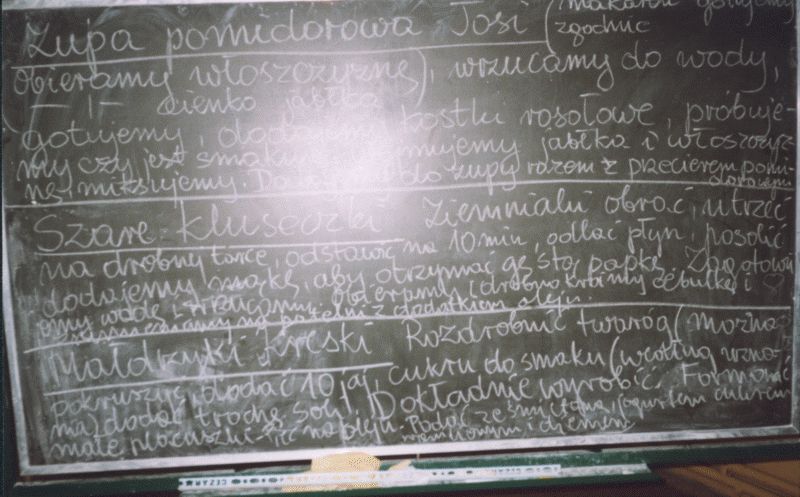 Zupa pomidorowa Tosi (makaron gotujemy
zgodnie
obieramy włoszczyznę), wrzucamy do wody,
(— ı — cienko jabłka
gotujemy, dodajemy kostki rosołowe, próbuje-
my czy jest smaku jabłka i włoszczyz-
nę, miksujemy. do zupy razem z przecierem pomi-
dorowym
Szare kluseczki Ziemniaki obrać, utrzeć
na drobnej tarce, odstawić na 10 min, odlać płyn, posolić
dodajemy mąkę, aby otrzymać gęstą papkę. Zagotowu
jemy wodę i wrzucamy drobno kroimy cebulkę i
na patelni z dodatkiem oleju.
Małdrzyki Kreski Rozdrobnić twaróg (można
pokruszyć, dodać 10 jaj cukru do smaku (według uzna-
nia) dodać trochę soli. Dokładnie wyrobić. Formować
małe placuszki Podać ze śmietaną, cukrem
i dżemem